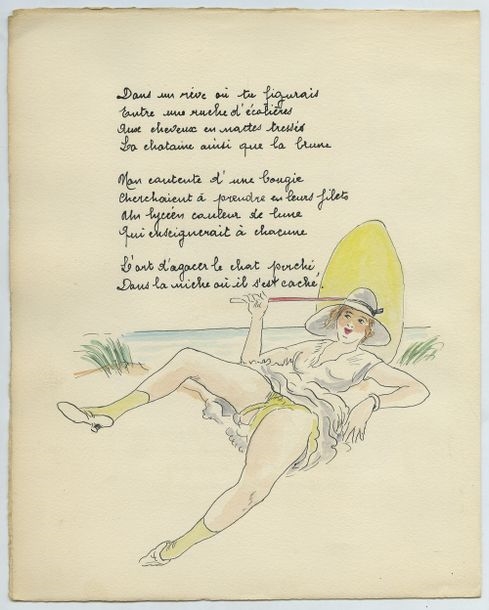 Dans un rêve où tu figurais
Entre une ruche d'écolières
Aux cheveux en nattes tressés
La chataine ainsi que la brune
Non contente d'une bougie
Cherchaient à prendre en leurs filets
Un lycéen couleur de lune
Qui enseignerait à chacune
L'art d'agacer le chat perché
Dans la niche où il s'est caché.